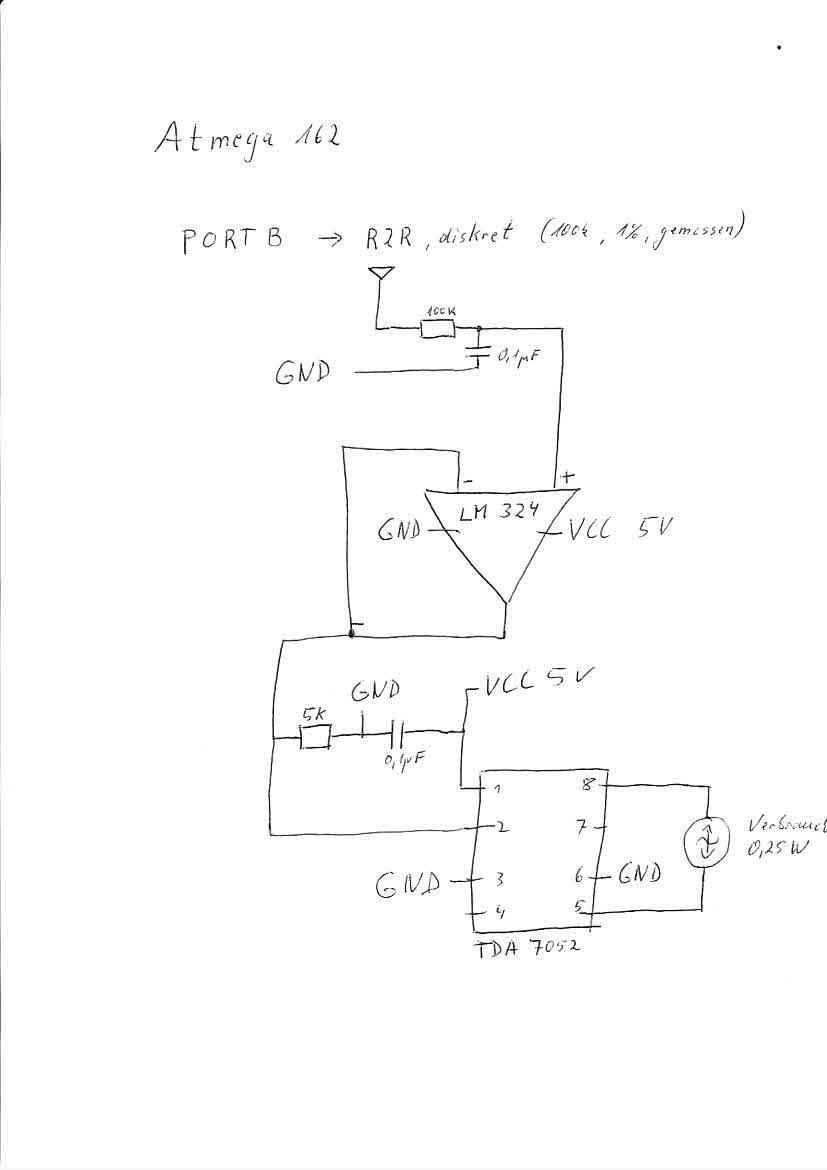 Atmega 162
PORT B → R2R, diskret (100k, 1%, gemessen)
100K
0,1µF
GND
- +
LM 324
GND VCC 5V
GND VCC 5V
5K
0,1µF
1 8
2 7
3 6
4 5
GND GND
TDA 7052
0,25W